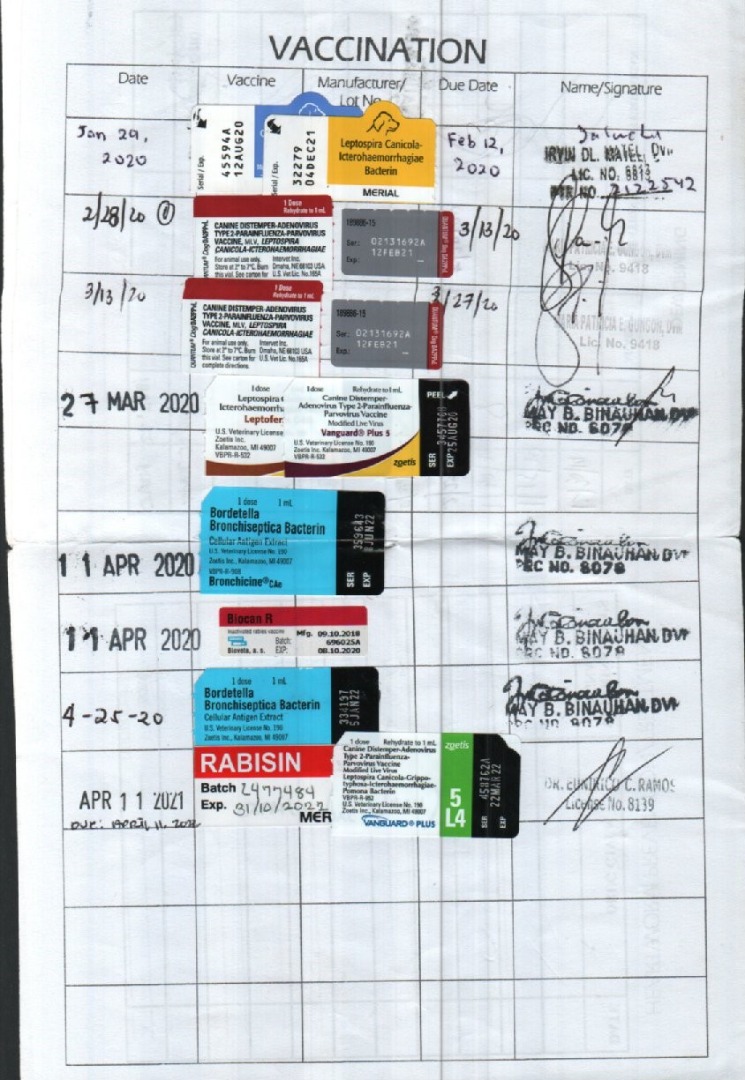 VACCINATION
Date
Vaccine
Manufacturer/
Lot No.
Due Date
Name/Signature
Jan 29,
2020
Serial / Exp.
45594A
12AUG20
Serial / Exp.
32279
04DEC21
Leptospira Canicola-
Icterohaemorrhagiae
Bacterin
MERIAL
Feb 12,
2020
IRVIN DL.
LIC. NO. 8813
PTR NO. 2122542
2/28/20
1 Dose
Rehydrate to 1 mL
CANINE DISTEMPER-ADENOVIRUS
TYPE 2-PARAINFLUENZA-PARVOVIRUS
VACCINE, MLV, LEPTOSPIRA
CANICOLA-ICTEROHAEMORRHAGIAE
For animal use only. Intervet Inc.
Store at 2° to 7°C. Burn Omaha, NE 68103 USA
this vial. See carton for U.S. Vet Lic. No. 165A
189888-15
Ser: 02131692A
Exp: 12FEB21
3/13/20
Lic. No. 9418
3/13/20
1 Dose
Rehydrate to 1 mL
CANINE DISTEMPER-ADENOVIRUS
TYPE 2-PARAINFLUENZA-PARVOVIRUS
VACCINE, MLV, LEPTOSPIRA
CANICOLA-ICTEROHAEMORRHAGIAE
For animal use only. Intervet Inc.
Store at 2° to 7°C. Burn Omaha, NE 68103 USA
this vial. See carton for U.S. Vet Lic. No. 165A
complete directions
189888-15
Ser: 02131692A
Exp: 12FEB21
3/27/20
PATRICIA E. GUNGON, DVM
Lic. No. 9418
27 MAR 2020
1 dose
Leptospira
Icterohaemorrh
Leptofer
U.S. Veterinary License
Zoetis Inc.
Kalamazoo, MI 49007
VBPR-R-532
1 dose Rehydrate to 1 mL
Canine Distemper-
Adenovirus Type 2-Parainfluenza-
Parvovirus Vaccine
Modified Live Virus
Vanguard® Plus 5
U.S. Veterinary License No. 190
Zoetis Inc. Kalamazoo, MI 49007
VBPR-R-533
zoetis
PEEL
SER
EXP 25AUG20
MAY B. BINAUHAN, DVM
PRC NO. 8078
11 APR 2020
1 dose 1 mL
Bordetella
Bronchiseptica Bacterin
Cellular Antigen Extract
U.S. Veterinary License No. 190
Zoetis Inc., Kalamazoo, MI 49007
VBPR-R-908
Bronchicine® CAe
SER 359643
EXP JUN22
MAY B. BINAUHAN, DVM
PRC NO. 8078
11 APR 2020
Biocan R
Inactivated rabies vaccine
Bioveta, a. s.
Mfg. 09.10.2018
Batch: 696025A
EXP: 08.10.2020
MAY B. BINAUHAN, DVM
PRC NO. 8078
4-25-20
1 dose 1 mL
Bordetella
Bronchiseptica Bacterin
Cellular Antigen Extract
U.S. Veterinary License No. 190
Zoetis Inc., Kalamazoo, MI 49007
334137
5JAN22
MAY B. BINAUHAN, DVM
PRC NO. 8078
APR 11 2021
DUE: APRIL 11, 2022
RABISIN
Batch L477484
Exp. 31/10/2022
MER
1 dose Rehydrate to 1 mL
Canine Distemper-Adenovirus
Type 2-Parainfluenza-
Parvovirus Vaccine
Modified Live Virus
Leptospira Canicola-Grippo-
typhosa-Icterohaemorrhagiae-
Pomona Bacterin
U.S. Veterinary License No. 190
Zoetis Inc., Kalamazoo, MI 49007
VANGUARD® PLUS
zoetis
5
L4
SER 458762A
EXP 22MAR22
DR. EUNIRICO C. RAMOS
License No. 8139